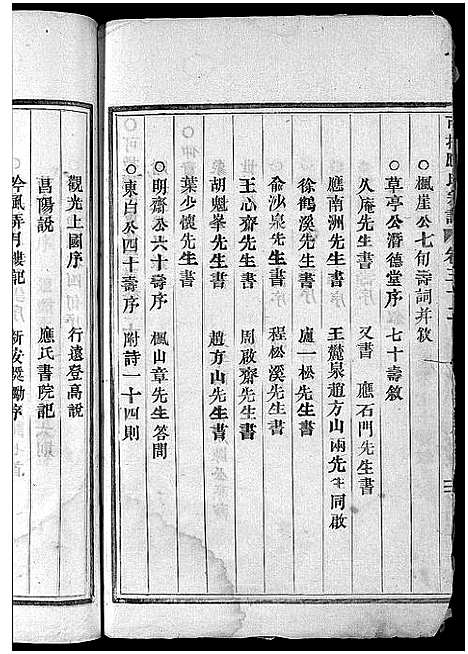 ○楓崖公七旬壽詞并敘
○草亭公濟德堂序 七十壽敘
久庵先生書 又書 應石門先生書
應南洲先生書 王麓泉趙方山兩先生同啟
徐鶴溪先生書 盧一松先生書
俞沙泉先生書 程松溪先生書
王心齋先生書 周啟齋先生書
胡魁峯先生書 趙方山先生書
葉少懷先生書
○明齋公六十壽序 楓山章先生答問
○東白公四十壽序 附詩一十四則
觀光上國序 行遠登高說
菖陽說 應氏書院記
吟風弄月樓記 新安獎勵序